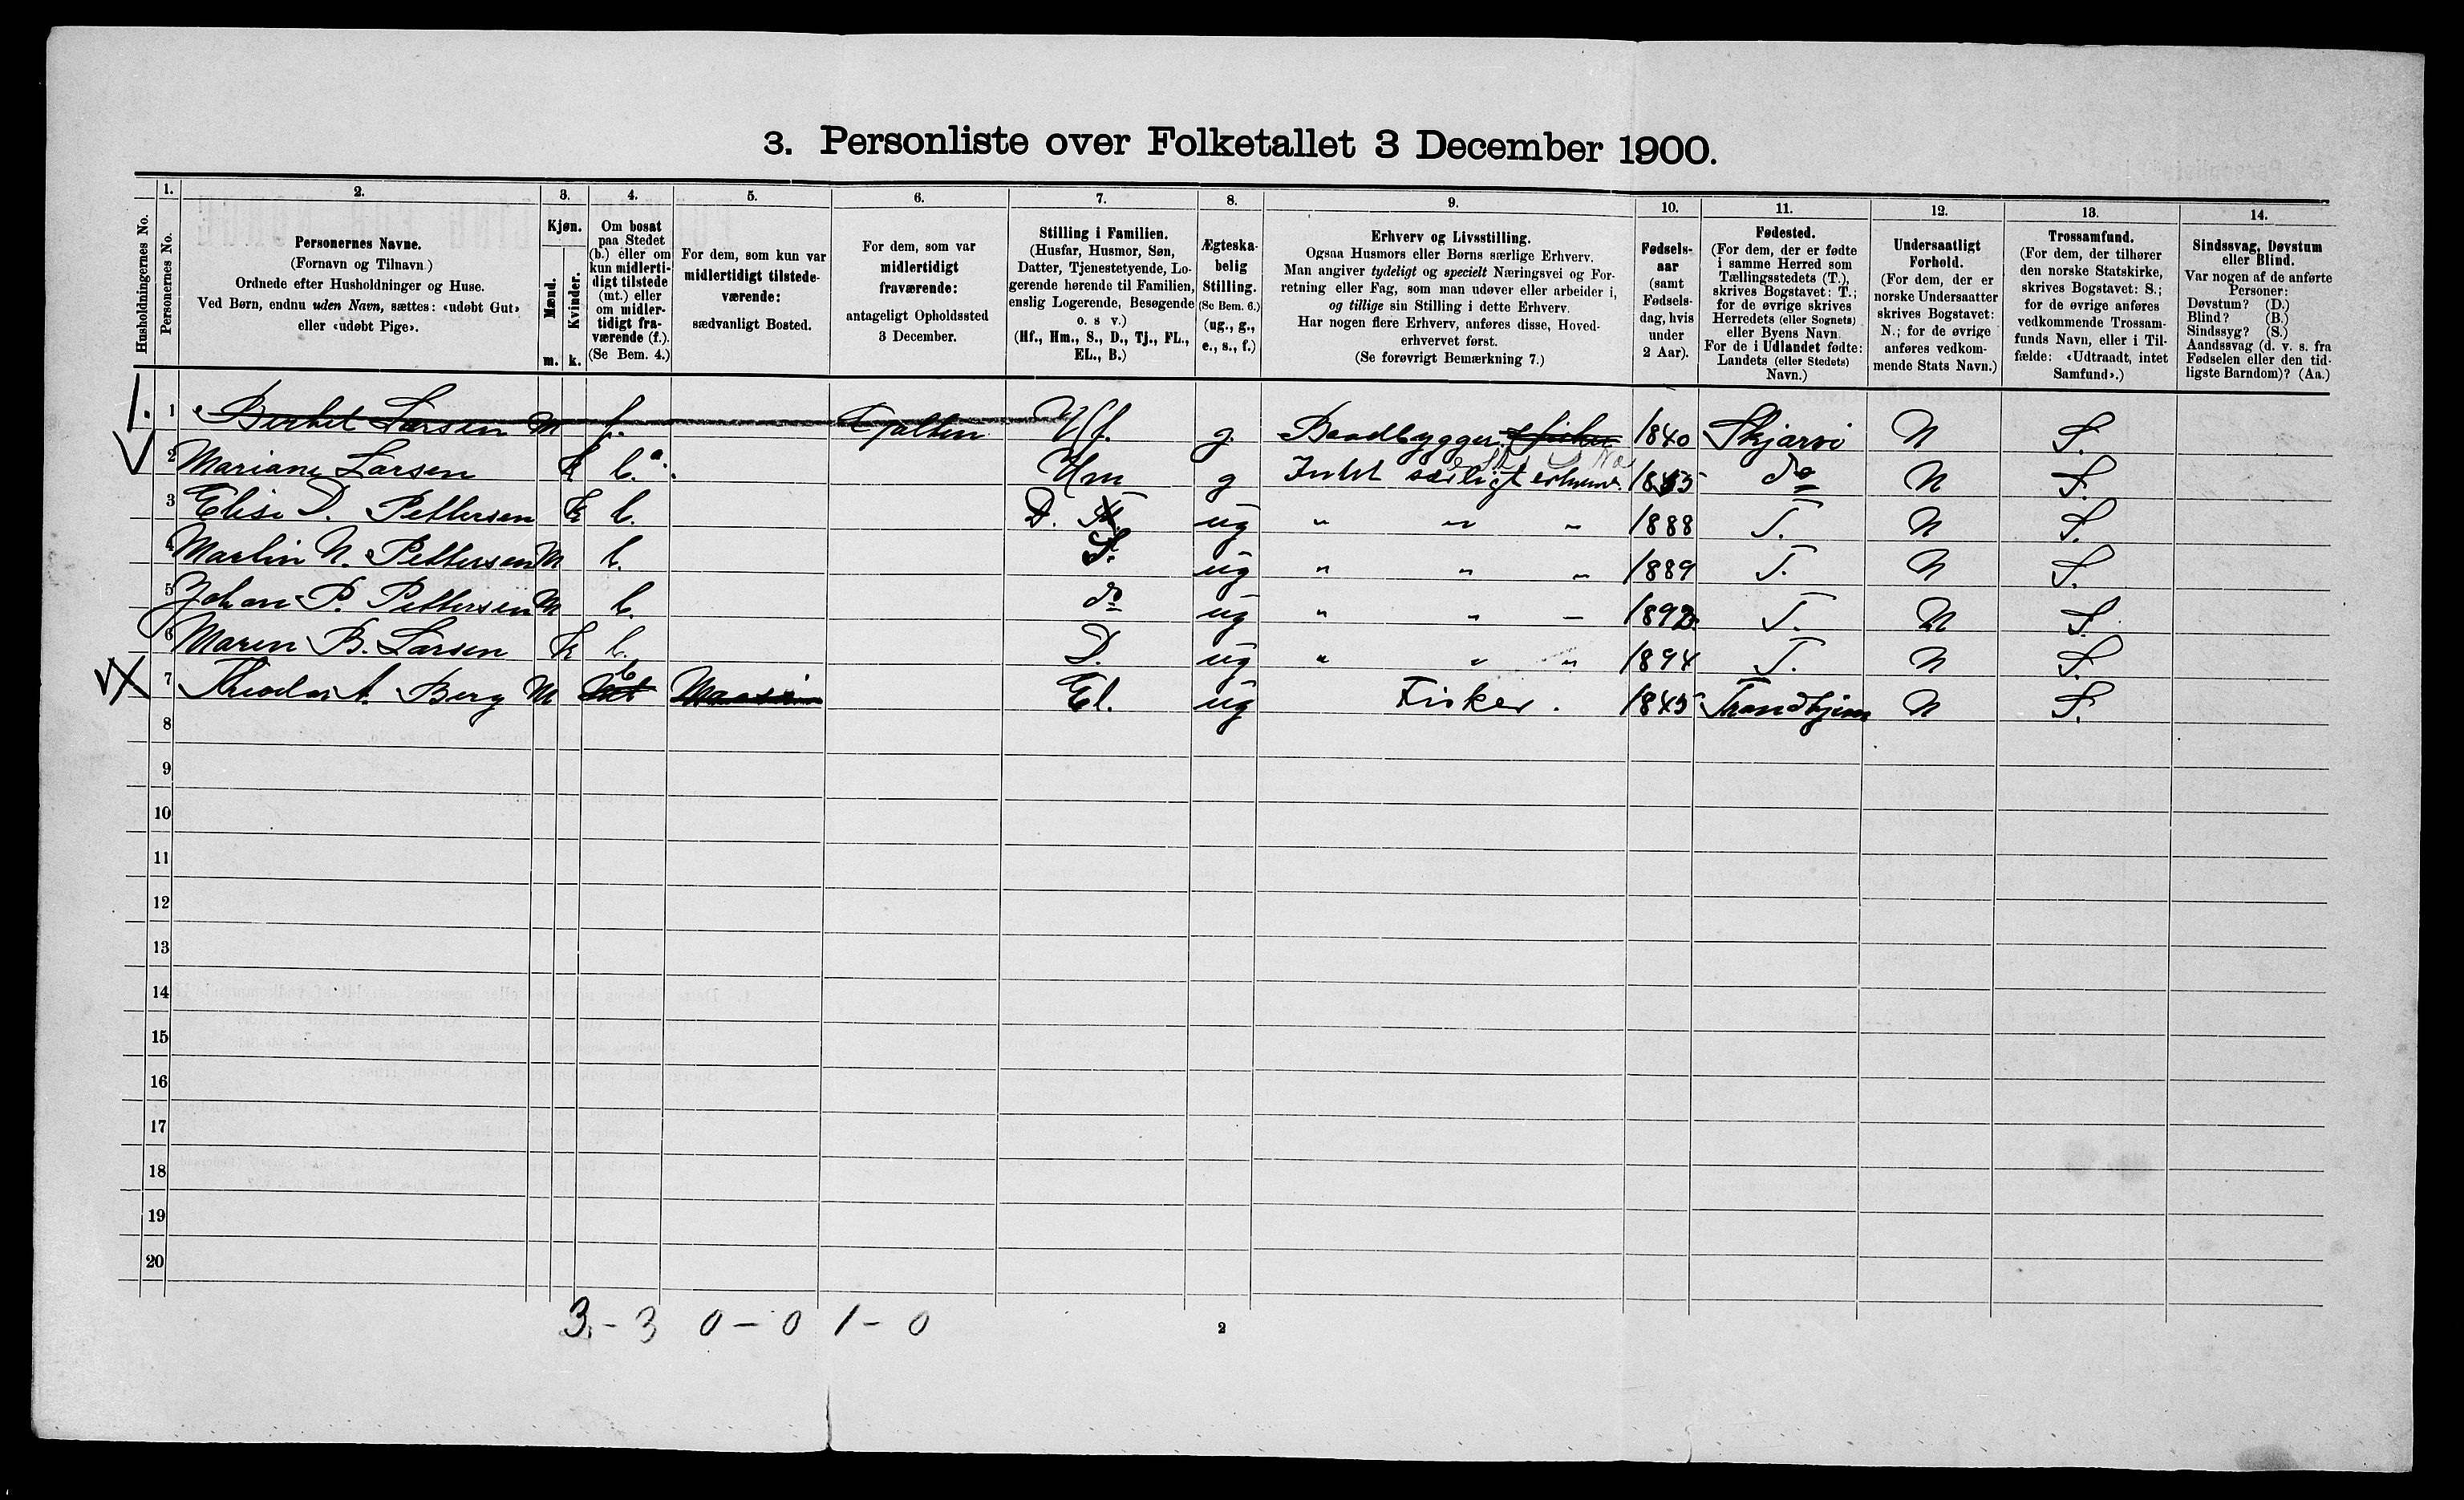 3. Personliste over Folketallet 3 December 1900.
Husholdningernes No.
1. Personernes No.
2. Personernes Navne.
(Fornavn og Tilnavn.)
Ordnede efter Husholdninger og Huse.
Ved Børn, endnu uden Navn, sættes: «udøbt Gut»
eller «udøbt Pige».
3. Kjøn.
Mænd. m.
Kvinder. k.
4. Om bosat
paa Stedet
(b.) eller om
kun midlerti-
digt tilstede
(mt.) eller
om midler-
tidigt fra-
værende (f.).
(Se Bem. 4.)
5. For dem, som kun var
midlertidigt tilstede-
værende:
sædvanligt Bosted.
6. For dem, som var
midlertidigt
fraværende:
antageligt Opholdssted
3 December.
7. Stilling i Familien.
(Husfar, Husmor, Søn,
Datter, Tjenestetyende, Lo-
gerende hørende til Familien,
enslig Logerende, Besøgende
o. s v.)
(Hf., Hm., S., D., Tj., FL.,
EL., B.)
8. Ægteska-
belig
Stilling.
(Se Bem. 6.)
(ug., g.,
e., s., f.)
9. Erhverv og Livsstilling.
Ogsaa Husmors eller Børns særlige Erhverv.
Man angiver tydeligt og specielt Næringsvei og For-
retning eller Fag, som man udøver eller arbeider i,
og tillige sin Stilling i dette Erhverv.
Har nogen flere Erhverv, anføres disse, Hoved-
erhvervet først.
(Se forøvrigt Bemærkning 7.)
10. Fødsels-
aar
(samt
Fødsels-
dag, hvis
under
2 Aar).
11. Fødested.
(For dem, der er fødte
i samme Herred som
Tællingsstedets (T.),
skrives Bogstavet: T.;
for de øvrige skrives
Herredets (eller Sognets)
eller Byens Navn.
For de i Udlandet fødte:
Landets (eller Stedets)
Navn.)
12. Undersaatligt
Forhold.
(For dem, der er
norske Undersaatter
skrives Bogstavet:
N.; for de øvrige
anføres vedkom-
mende Stats Navn.)
13. Trossamfund.
(For dem, der tilhører
den norske Statskirke,
skrives Bogstavet: S.;
for de øvrige anføres
vedkommende Trossam-
funds Navn, eller i Til-
fælde: «Udtraadt, intet
Samfund».)
14. Sindssvag, Døvstum
eller Blind.
Var nogen af de anførte
Personer:
Døvstum? (D.)
Blind? (B.)
Sindssyg? (S.)
Aandssvag (d. v. s. fra
Fødselen eller den tid-
ligste Barndom)? (Aa.)
1. 1 Berhel Larsen M f. Hf. g. Baadbygger & fisker 1840 Skjærvö N S.
2 Mariane Larsen K b. Hm g Intet særligt erhverv. 18 5 do N S.
3 Elise D. Pettersen K b. D. ug " " " 1888 T. N S.
4 Martin N. Pettersen M b. S. ug " " " 1889 T. N S.
5 Johan P. Pettersen M b. do ug " " " 1892 T. N S.
6 Maren B. Larsen K b. D. ug " " " 1894 T. N S.
7 Theodor A. Berg M b El. ug Fisker. 1845 Trondhjem N S.
8
9
10
11
12
13
14
15
16
17
18
19
20
3.-3 0-0 1-0
2